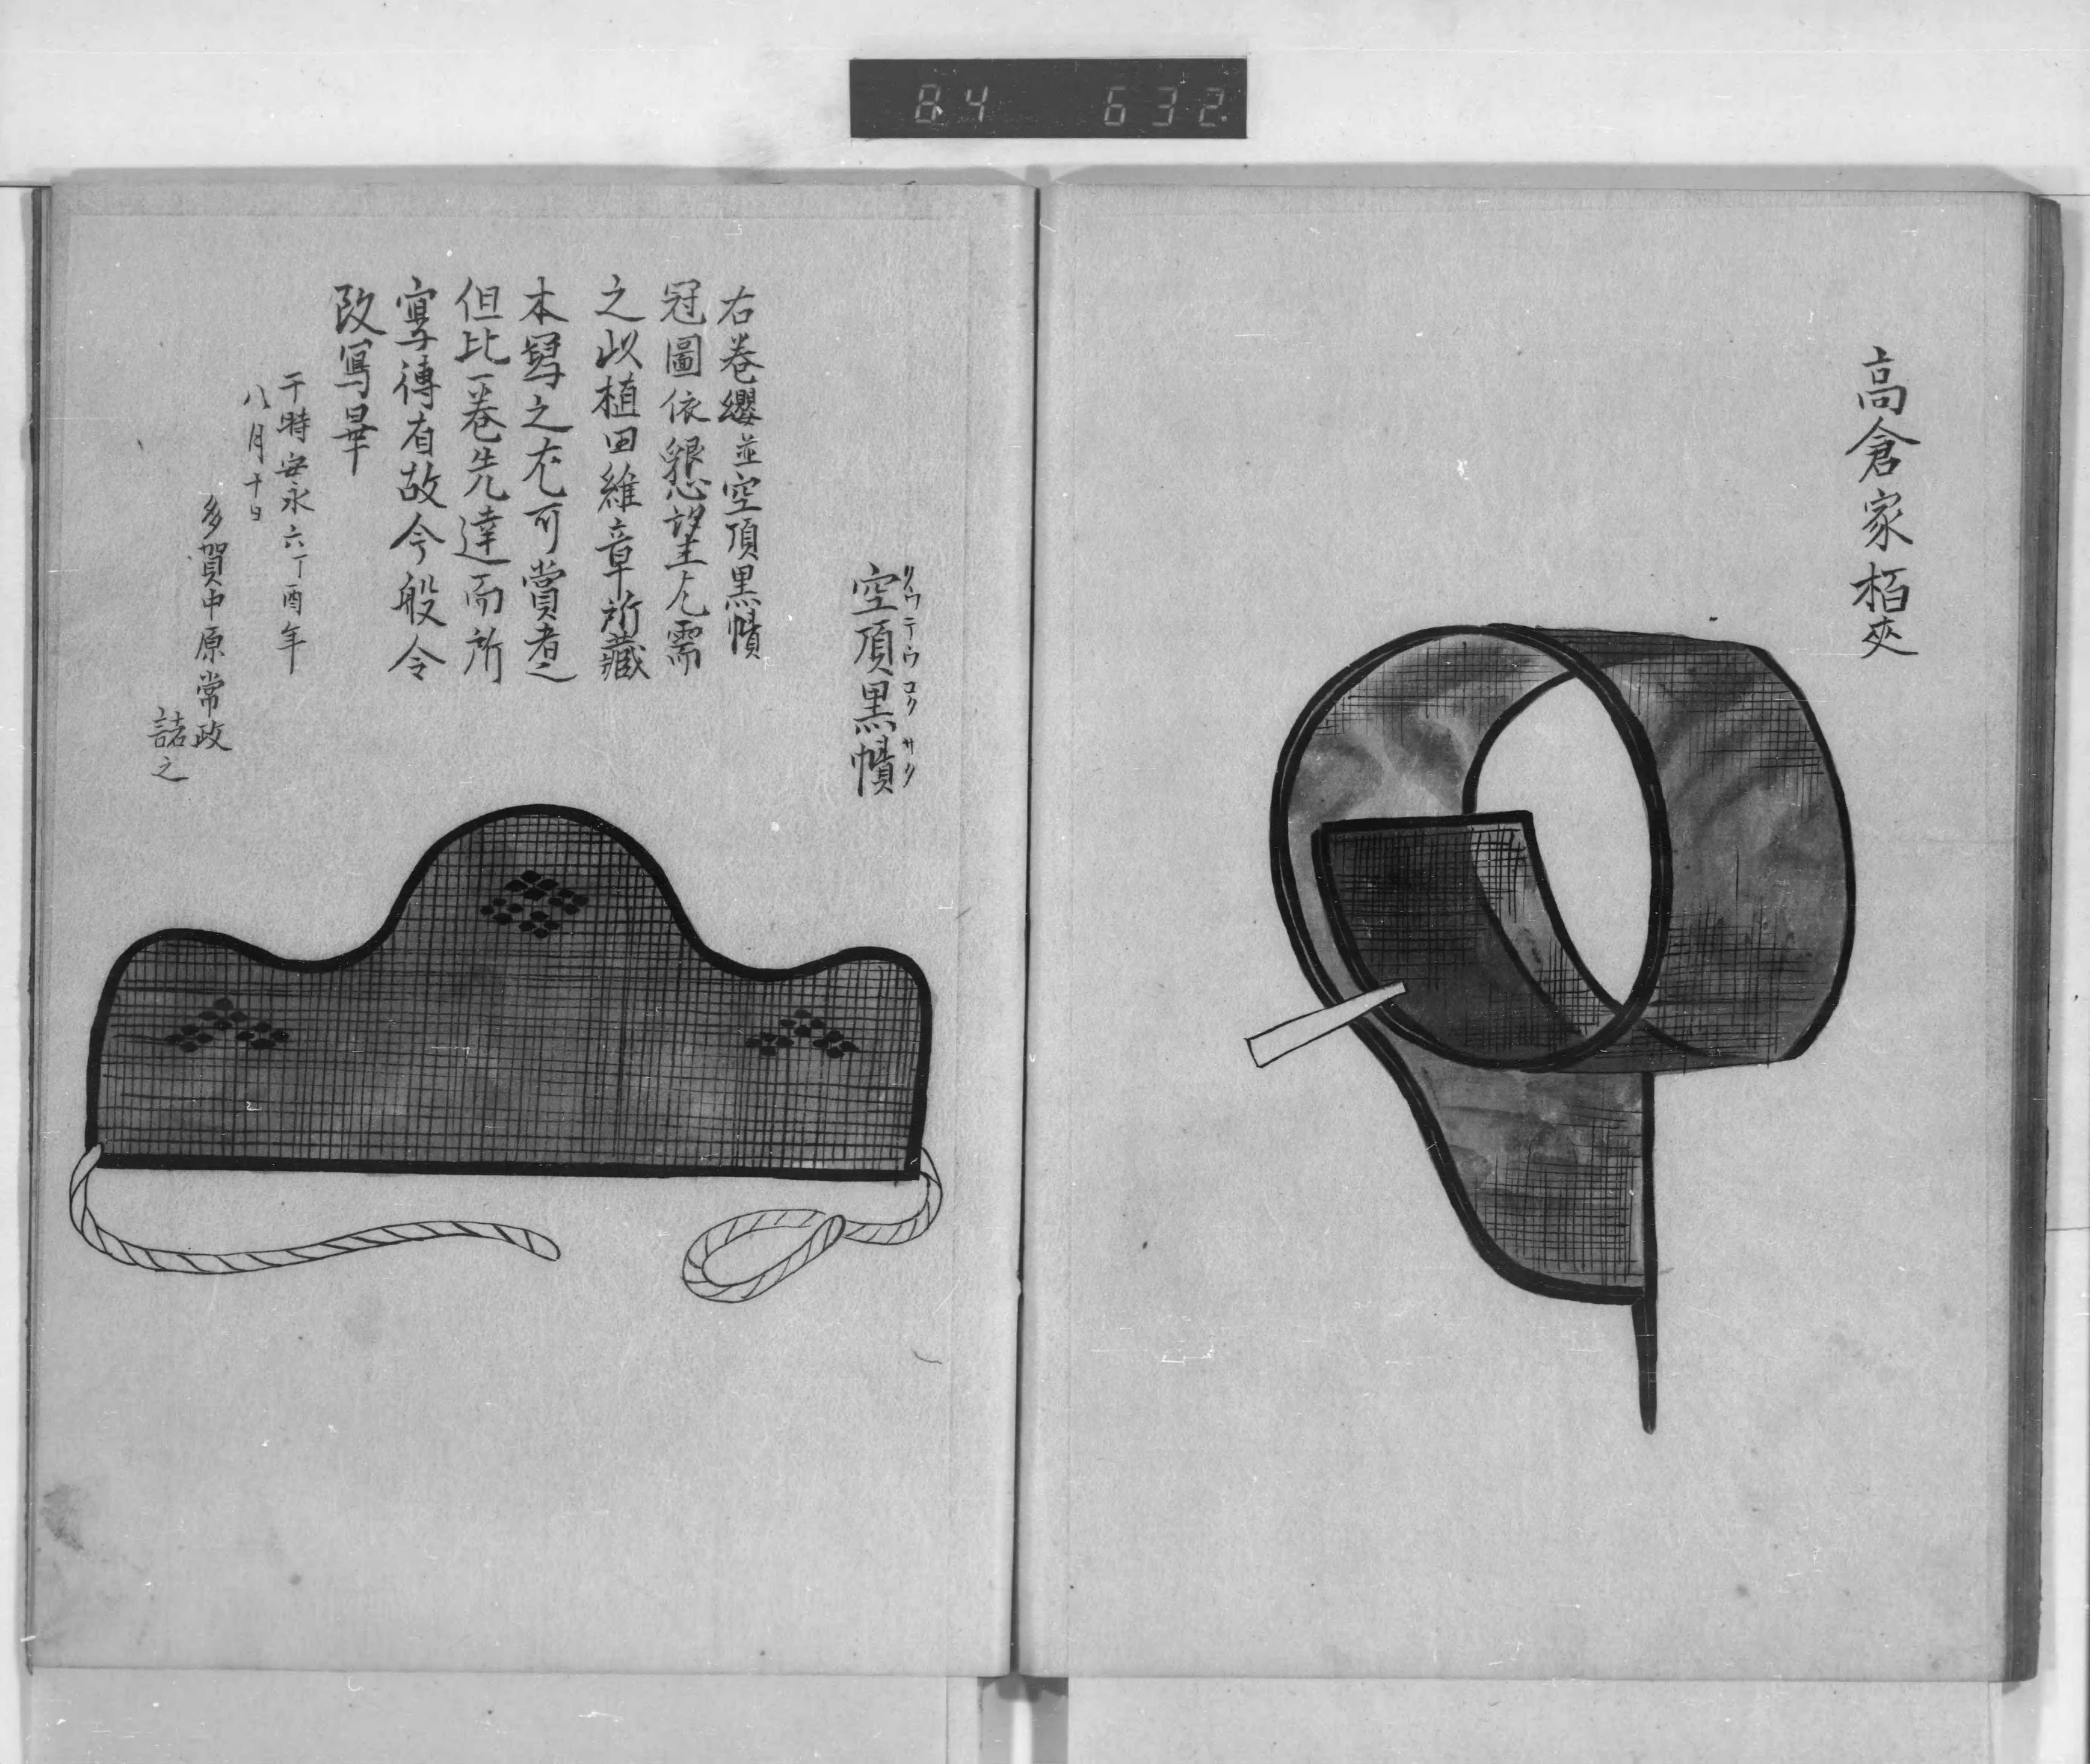 84 632
高倉家栢夾
空頂黒幘
クウテウコクサク
右巻纓並空頂黒幘
冠圖依懇望
需
之以植田維章所藏
本寫之尤可賞者之
但比一巻先達而所
寫傳有故今般令
改寫畢
于時安永六丁酉年
八月十日
多賀中原常政
誌之